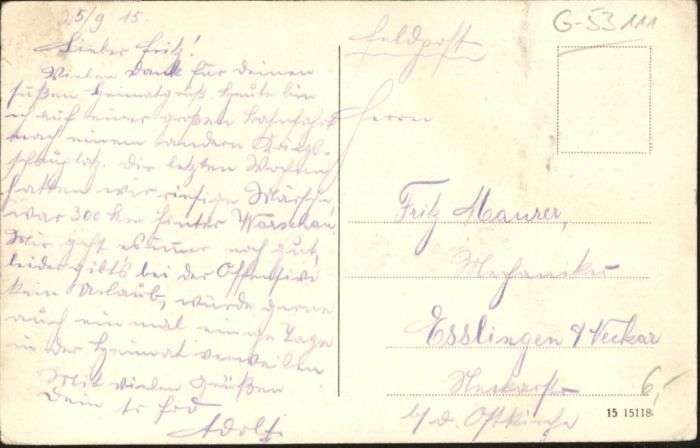 25/9 15.
Lieber Fritz!
Vielen Dank für deinen
süßen Heimatgruß. Heute bin
ich auf einer großen Bahnfahrt
nach einem andern Kriegs-
schauplatz. Die letzten Wochen
hatten wir riesige Märsche
war 300 km hinter Warschau.
Mir geht es immer noch gut,
leider gibt's bei der Offensive
kein Urlaub, würde gerne
auch einmal einige Tage
in der Heimat verweilen
Mit vielen Grüßen
Dein
Adolf.
G-53 111
Feldpost
Herrn
Fritz Maurer,
Mechaniker
Esslingen a/Neckar
b/d. Ostkirche
6,-
15 15118